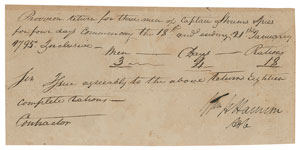 Provision Return for three men of Captain Spies
for four days Commencing the 18th and ending 21st January
1795 Inclusive
Men Days Rations
3 4 18
Sir Issue agreeably to the above Return Eighteen
complete rations
Contractor
Wm H Harrison